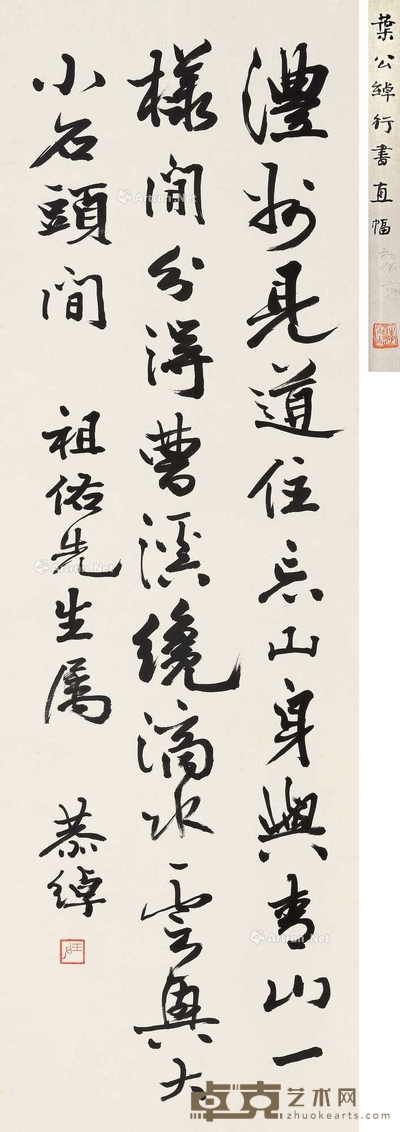 澧州見道住忘山身與青山一
樣閒分得曹溪纔滴水雲興大
小石頭間
祖佑先生属
恭綽
葉公綽行書直幅
卓克艺术网
www.zhuokearts.com
Artron.Net